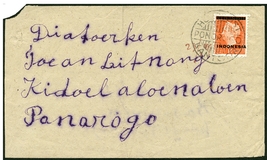 Diatoerken
Toean Lit nong
Kidoel aloenaloen
Panarogo
INDONESIA